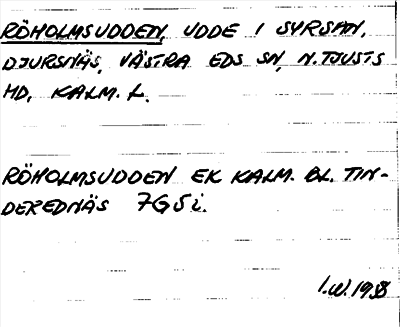 RÖHOLMSUDDEN, UDDE I SYRSAN,
DJURSNÄS, VÄSTRA EDS SN, N.TJUSTS
HD, KALM. L.
RÖHOLMSUDDEN EK KALM. BL. TIN-
DEREDNÄS 7G5i.
I.W. 1958